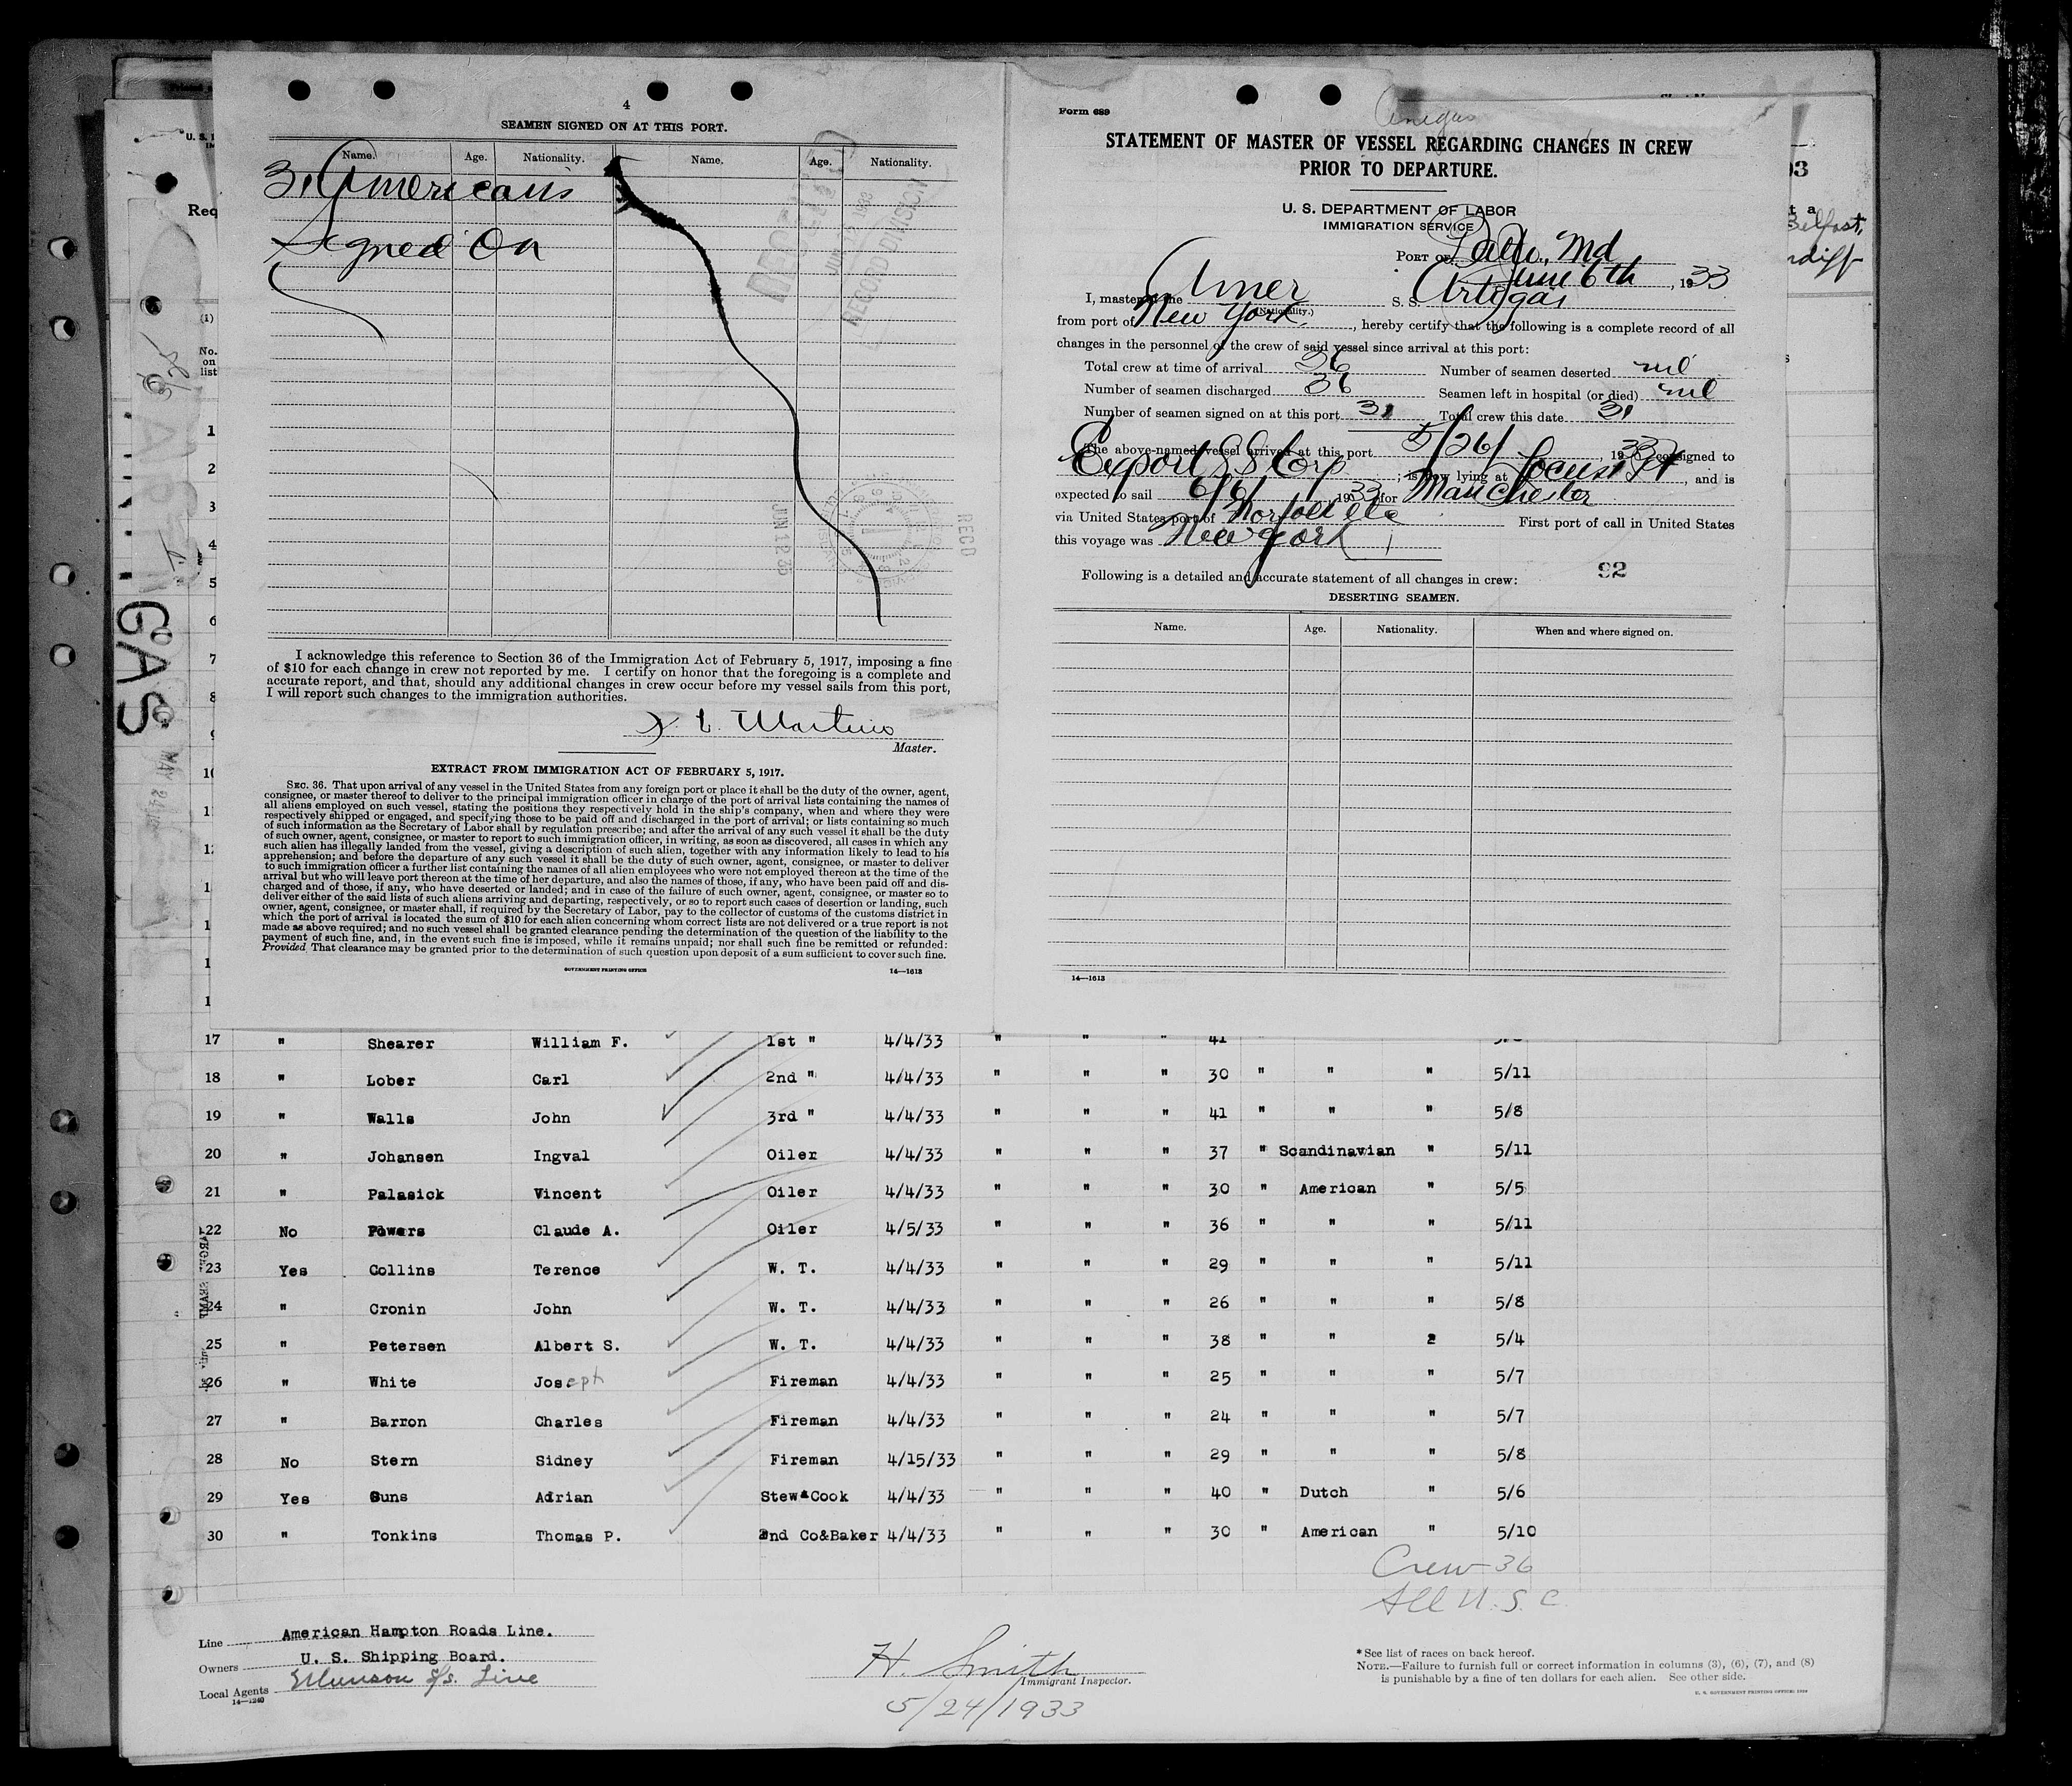 4
SEAMEN SIGNED ON AT THIS PORT.
Name. Age. Nationality. Name. Age. Nationality.
31 Americans
Signed On
RECORD DIVISION
JUN 12 33
REC'D
I acknowledge this reference to Section 36 of the Immigration Act of February 5, 1917, imposing a fine
of $10 for each change in crew not reported by me. I certify on honor that the foregoing is a complete and
accurate report, and that, should any additional changes in crew occur before my vessel sails from this port,
I will report such changes to the immigration authorities.
Martino
Master.
EXTRACT FROM IMMIGRATION ACT OF FEBRUARY 5, 1917.
SEC. 36. That upon arrival of any vessel in the United States from any foreign port or place it shall be the duty of the owner, agent,
consignee, or master thereof to deliver to the principal immigration officer in charge of the port of arrival lists containing the names of
all aliens employed on such vessel, stating the positions they respectively hold in the ship's company, when and where they were
respectively shipped or engaged, and specifying those to be paid off and discharged in the port of arrival; or lists containing so much
of such information as the Secretary of Labor shall by regulation prescribe; and after the arrival of any such vessel it shall be the duty
of such owner, agent, consignee, or master to report to such immigration officer, in writing, as soon as discovered, all cases in which any
such alien has illegally landed from the vessel, giving a description of such alien, together with any information likely to lead to his
apprehension; and before the departure of any such vessel it shall be the duty of such owner, agent, consignee, or master to deliver
to such immigration officer a further list containing the names of all alien employees who were not employed thereon at the time of the
arrival but who will leave port thereon at the time of her departure, and also the names of those, if any, who have been paid off and dis-
charged and of those, if any, who have deserted or landed; and in case of the failure of such owner, agent, consignee, or master so to
deliver either of the said lists of such aliens arriving and departing, respectively, or so to report such cases of desertion or landing, such
owner, agent, consignee, or master shall, if required by the Secretary of Labor, pay to the collector of customs of the customs district in
which the port of arrival is located the sum of $10 for each alien concerning whom correct lists are not delivered or a true report is not
made as above required; and no such vessel shall be granted clearance pending the determination of the question of the liability to the
payment of such fine, and, in the event such fine is imposed, while it remains unpaid; nor shall such fine be remitted or refunded:
Provided, That clearance may be granted prior to the determination of such question upon deposit of a sum sufficient to cover such fine.
GOVERNMENT PRINTING OFFICE 14—1613
Form 689
STATEMENT OF MASTER OF VESSEL REGARDING CHANGES IN CREW
PRIOR TO DEPARTURE.
U. S. DEPARTMENT OF LABOR
IMMIGRATION SERVICE
PORT OF Balto., Md
June 6th, 1933
I, master of the Amer S. S. Artigas
(Nationality.)
from port of New York, hereby certify that the following is a complete record of all
changes in the personnel of the crew of said vessel since arrival at this port:
Total crew at time of arrival 36 Number of seamen deserted nil
Number of seamen discharged 36 Seamen left in hospital (or died) nil
Number of seamen signed on at this port 31 Total crew this date 31
The above-named vessel arrived at this port 5/26/, 1933, consigned to
Export S S Corp; is now lying at Locust Pt, and is
expected to sail 6/6/ 1933 for Manchester
via United States port of Norfolk etc First port of call in United States
this voyage was New York
Following is a detailed and accurate statement of all changes in crew: 92
DESERTING SEAMEN.
Name. Age. Nationality. When and where signed on.
14—1613
Req
(1)
No.
on
list
GAS
Belfast,
1
2
3
4
5
6
7
8
17 " Shearer William F. 1st " 4/4/33 " " " 41
18 " Lober Carl 2nd " 4/4/33 " " " 30 " " " 5/11
19 " Walls John 3rd " 4/4/33 " " " 41 " " " 5/8
20 " Johansen Ingval Oiler 4/4/33 " " " 37 " Scandinavian " 5/11
21 " Palasick Vincent Oiler 4/4/33 " " " 30 " American " 5/5
22 No Powers Claude A. Oiler 4/5/33 " " " 36 " " " 5/11
23 Yes Collins Terence W. T. 4/4/33 " " " 29 " " " 5/11
24 " Cronin John W. T. 4/4/33 " " " 26 " " " 5/8
25 " Petersen Albert S. W. T. 4/4/33 " " " 38 " " 2 5/4
26 " White Joseph Fireman 4/4/33 " " " 25 " " " 5/7
27 " Barron Charles Fireman 4/4/33 " " " 24 " " " 5/7
28 No Stern Sidney Fireman 4/15/33 " " " 29 " " " 5/8
29 Yes Suns Adrian Stew&Cook 4/4/33 " " " 40 " Dutch " 5/6
30 " Tonkins Thomas P. 2nd Co&Baker 4/4/33 " " " 30 " American " 5/10
Crew-36
All U.S.C.
Line American Hampton Roads Line.
Owners U. S. Shipping Board.
Local Agents Munson S/S. Line
14—1240
H. Smith
Immigrant Inspector.
5/24/1933
* See list of races on back hereof.
NOTE.—Failure to furnish full or correct information in columns (3), (6), (7), and (8)
is punishable by a fine of ten dollars for each alien. See other side.